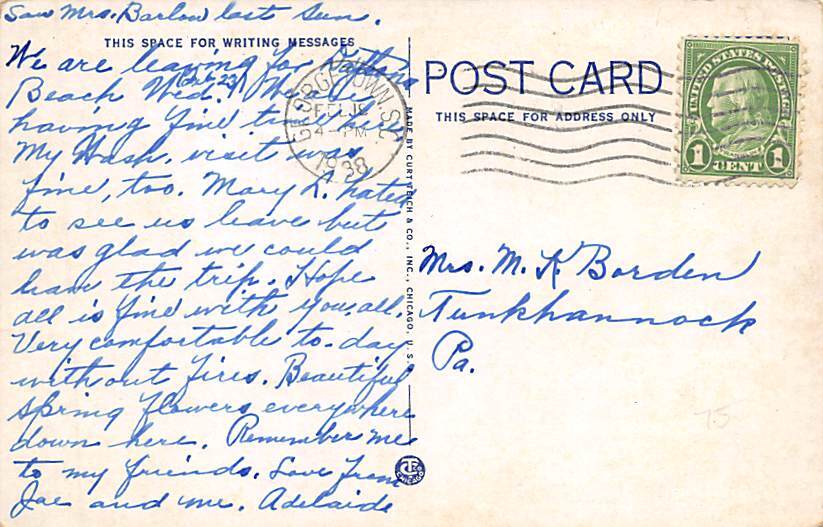 Saw Mrs. Barlow last Sun.
THIS SPACE FOR WRITING MESSAGES
We are leaving for Daytona
Beach Wed. (Feb 23)
having fine
My Wash. visit was
fine, too. Mary L. hated
to see us leave but
was glad we could
have the trip. Hope
all is fine with you all.
Very comfortable to-day
without fires. Beautiful
spring flowers everywhere
down here. Remember me
to my friends. Love from
Joe and me. Adelaide
GEORGETOWN, S.C.
FEB 19
4-PM
1938
MADE BY CURT TEICH & CO., INC., CHICAGO, U.S.A.
POST CARD
THIS SPACE FOR ADDRESS ONLY
UNITED STATES POSTAGE
1 CENT 1
Mrs. M. K. Borden
Tunkhannock
Pa.
75